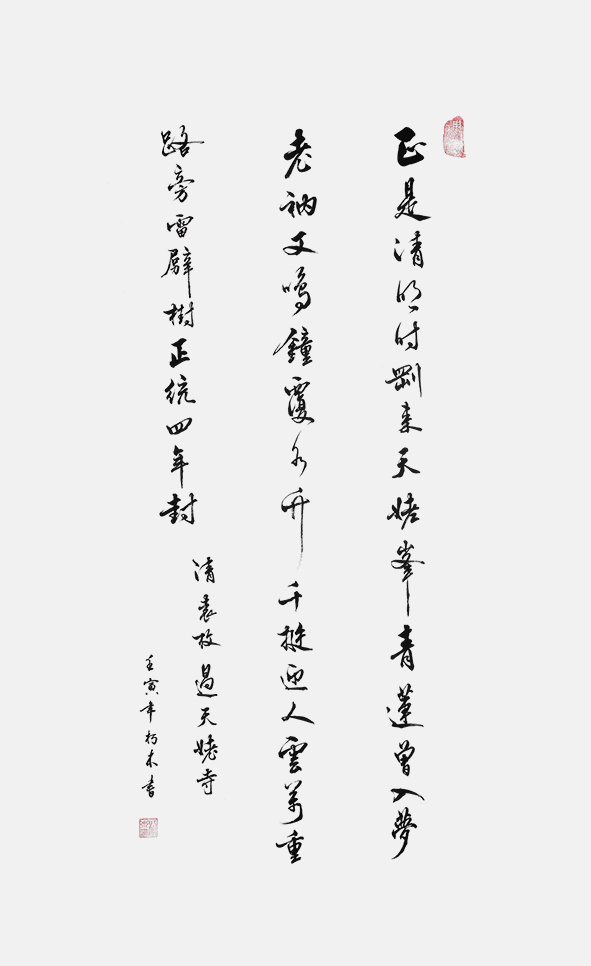 正是清明时劚来天姥峯青蓮曾入夢
老衲又鳴鐘覆水升千挺迎人雲萬重
路旁雷劈樹正统四年封
清袁枚過天姥寺
壬寅年朽木書